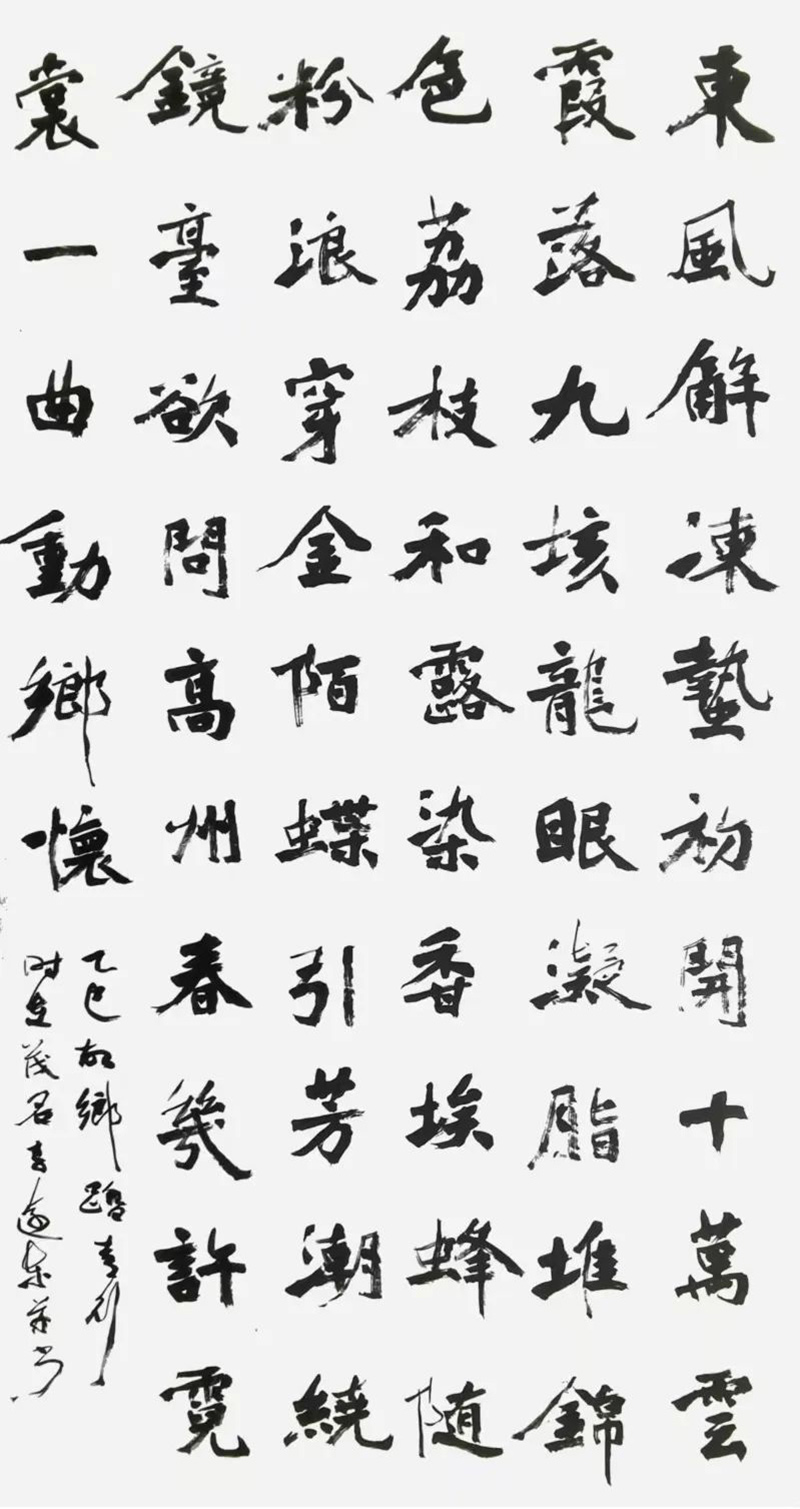 東風解凍蟄初開十萬雲
霞落九垓龍眼凝脂堆錦
色荔枝和露染香埃蜂随
粉浪穿金陌蝶引芳潮繞
鏡臺欲問高州春幾許霓
裳一曲動鄉懷
乙巳故鄉踏青行
时在茂名